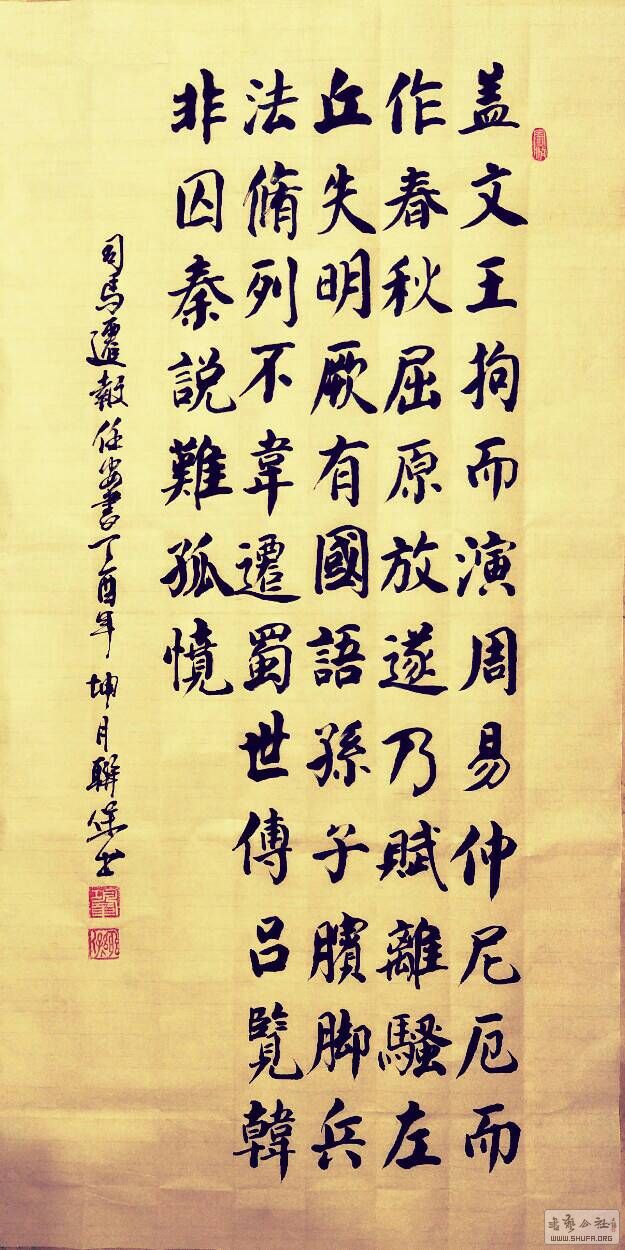 盖文王拘而演周易仲尼厄而
作春秋屈原放遂乃賦離騷左
丘失明厥有國語孫子臏脚兵
法脩列不韋遷蜀世傳呂覽韓
非囚秦説難孤憤
司馬遷報任安書丁酉年坤月聯保书
书艺公社
WWW.SHUFA.ORG